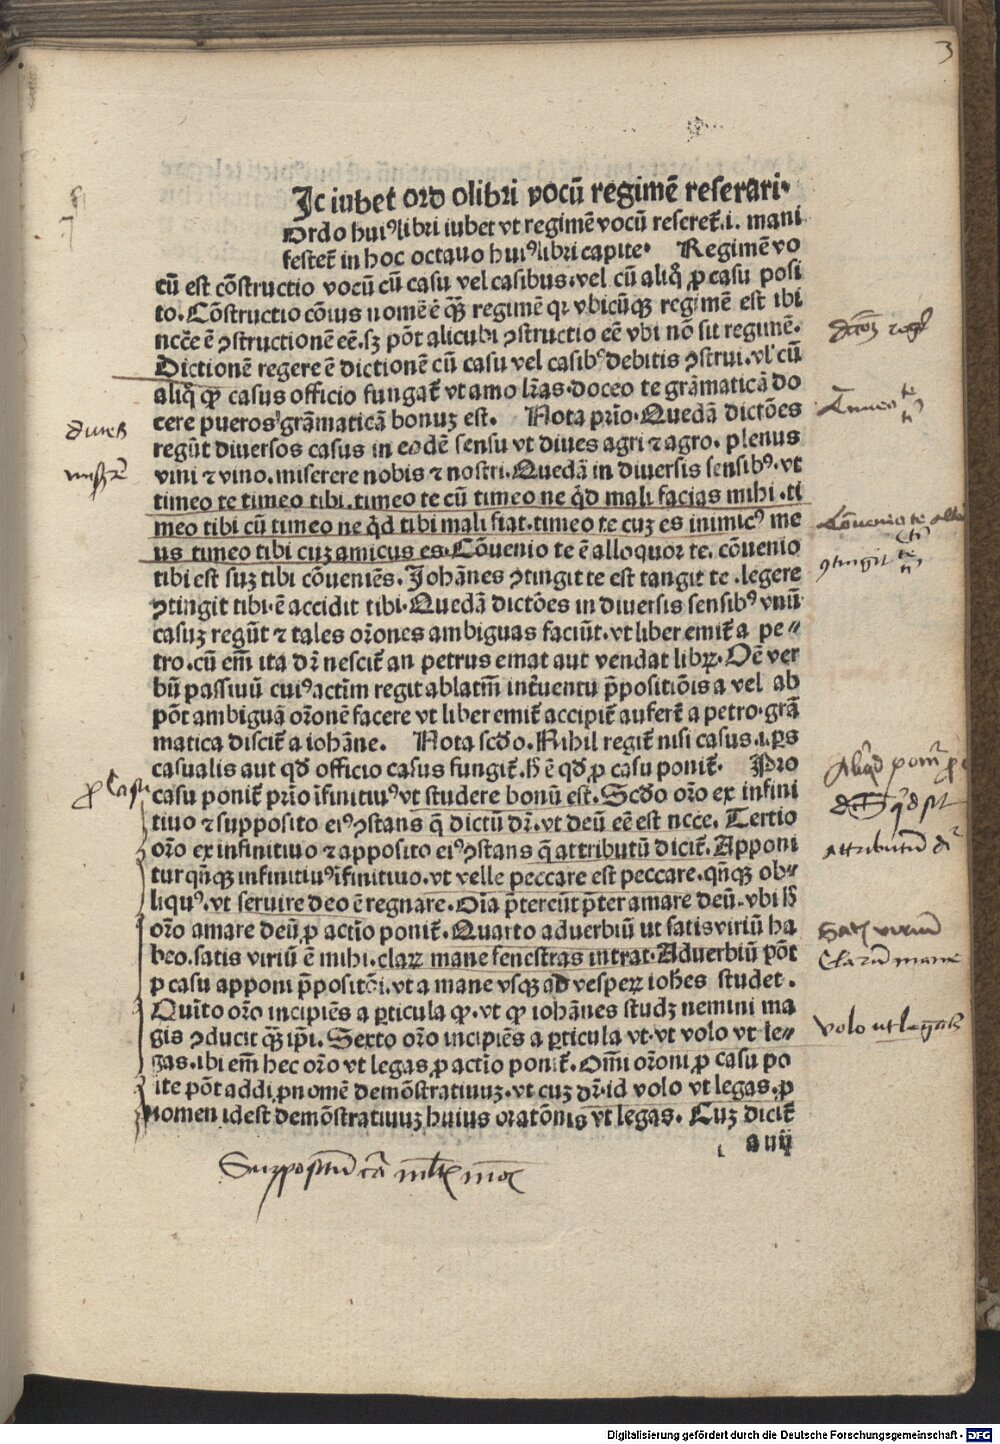 3
Jc iubet ord olibri vocū regimē reserari.
Ordo huiꝰ libri iubet vt regimē vocū reseret̄.i. mani
festet̄ in hoc octauo huiꝰ libri capite. Regimē vo
cū est cōstructio vocū cū casu vel casibus.vel cū aliq̊ ꝓ casu posi
to. Cōstructio cōius nomē ē q̄ꝫ regimē qꝛ vbicūqꝫ regimē est ibi
ncc̄e ē ꝯstructionē eē.sꝫ pōt alicubi ꝯstructio eē vbi nō sit regimē.
Dictionē regere ē dictionē cū casu vel casibꝰ debitis ꝯstrui.vl' cū
aliq̊ ꝙ casus officio fungat̄ vt amo lr̄as.doceo te grāmaticā do
cere pueros grāmaticā bonuꝫ est. Nota prīo.Quedā dictōes
regūt diuersos casus in eodē sensu vt diues agri ⁊ agro. plenus
vini ⁊ vino. miserere nobis ⁊ nostri.Quedā in diuersis sensibꝰ.vt
timeo te timeo tibi.timeo te cū timeo ne q̊d mali facias mihi.ti
meo tibi cū timeo ne q̊d tibi mali fiat.timeo te cuꝫ es inimicꝰ me
us timeo tibi cuꝫ amicus es.Cōuenio te ē alloquor te. cōuenio
tibi est suꝫ tibi cōueniēs. Johānes ꝯtingit te est tangit te .legere
ꝯtingit tibi.ē accidit tibi.Quedā dictōes in diuersis sensibꝰ vnū
casuꝫ regūt ⁊ tales orōnes ambiguas faciūt.vt liber emit̄ a pe⸗
tro.cū em̄ ita dr̄ nescit̄ an petrus emat aut vendat libꝝ.Oē ver
bū passiuū cuiꝰ actīm regit ablatm̄ inťuentu p̄positiōis a vel ab
pōt ambiguā orōnē facere vt liber emit̄ accipit̄ aufert̄ a petro.grā
matica discit̄ a iohāne. Nota scd̄o.Nihil regit̄ nisi casus.i.ꝑs
casualis aut qd̄ officio casus fungit̄.h̄ ē qd̄ ꝓ casu ponit̄. Pro
casu ponit̄ prīo īfinitiuꝰ vt studere bonū est.Scd̄o orō ex infini
tiuo ⁊ supposito eiꝰ ꝯstans q̄ dictū dr̄.vt deū eē est ncc̄e. Tertio
orō ex infinitiuo ⁊ apposito eiꝰ ꝯstans q̄ attributū dicit̄. Apponi
tur qn̄qꝫ infinitiuꝰ īfinitiuo.vt velle peccare est peccare.qn̄qꝫ ob⸗
liquꝰ.vt seruire deo ē regnare.oīa p̄tereūt p̄ter amare deū.vbi h̄
orō amare deū ꝓ actīo ponit̄.Quarto aduerbiū ut satis viriū ha
beo.satis viriū ē mihi.claꝝ mane fenestras intrat.Aduerbiū pōt
ꝓ casu apponi p̄positōi.vt a mane vsqꝫ ad vesperꝝ ioh̄es studet.
Quīto orō incipiēs a ꝑticula ꝙ.vt ꝙ iohānes studꝫ nemini ma
gis ꝯducit q̄ꝫ ip̄i. Sexto orō incipiēs a ꝑticula vt.vt volo vt le⸗
gas.ibi em̄ hec orō vt legas ꝓ actīo ponit̄.Om̄i orōni ꝓ casu po
ite pōt addi ꝓnomē demōstratiuuꝫ.vt cuꝫ dr̄.id volo vt legas.ꝓ
nomen id est demōstratiuuꝫ huius oratōnis vt legas. Cuꝫ dicit̄
a iiij
diues
ꝓ casu
Timeo te
Cōuenio te
ꝯtingit te
attributū dr̄
Satis viriū
Clarū mane
volo ut legas
Digitalisierung gefördert durch die Deutsche Forschungsgemeinschaft - DFG